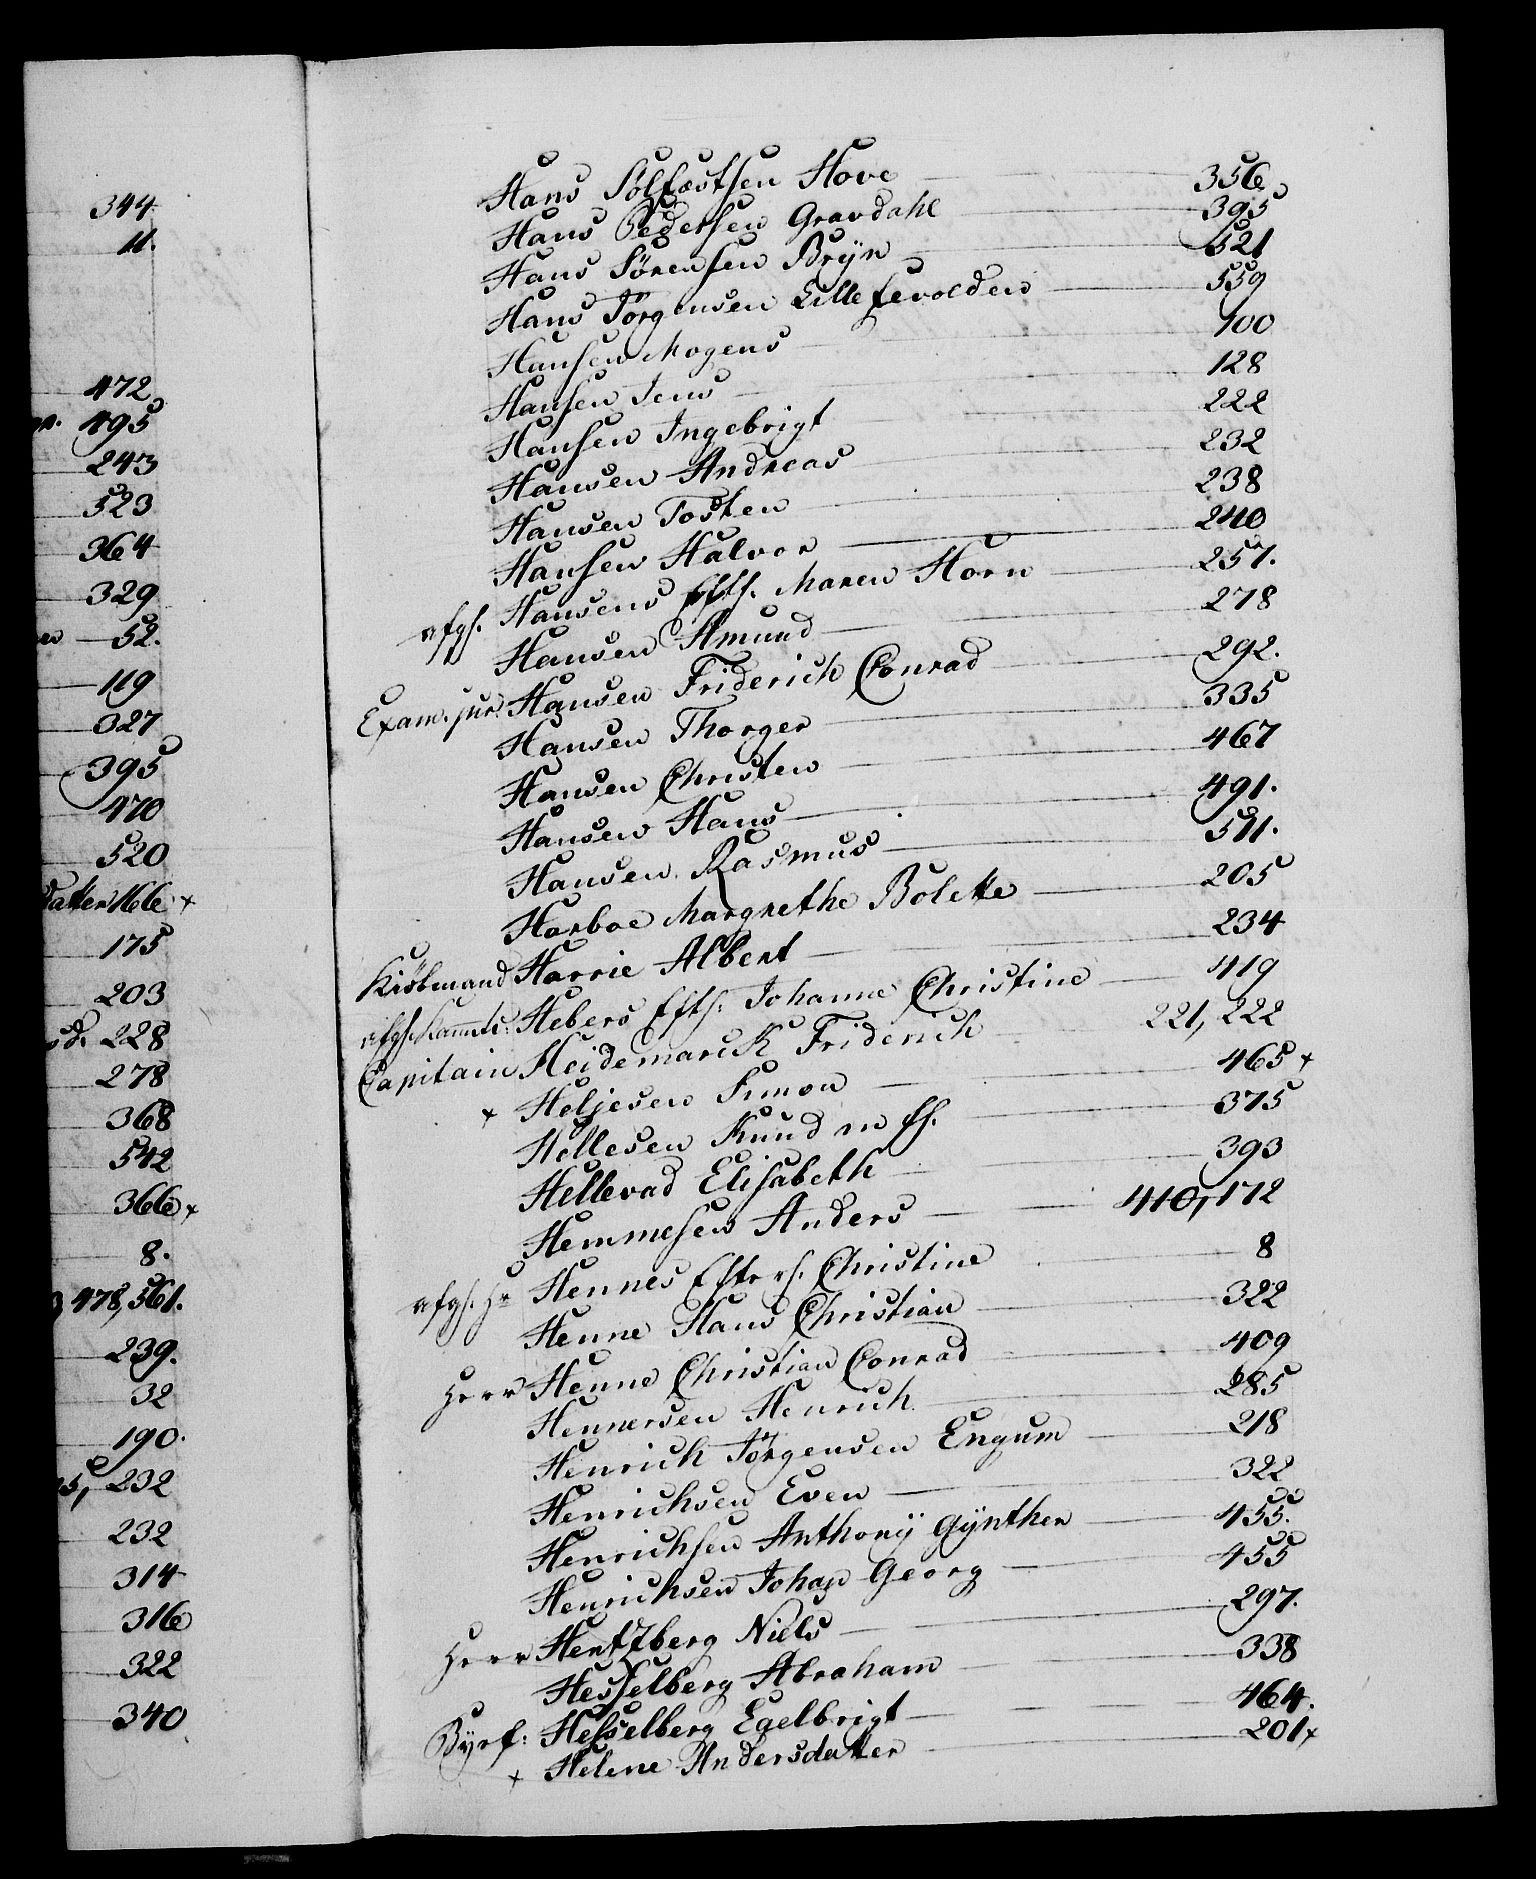 344
11.
472
495
243
523
364
329
52.
119
327
395
470
520
datter 166 +
175
203
228
278
368
542
366 +
8.
478, 561.
239.
32
190.
5, 232
232
314
316
322
340
Hans Solfæstsen Hove 356
Hans Pedersen Gravdahl 395
Hans Sörensen Brÿn 521
Hans Jörgensen Lillefevolden 559
Hansen Mogens 100
Hansen Jens 128
Hansen Ingebrigt 222
Hansen Andreas 232
Hansen Tosten 238
Hansen Halvor 240
afgs. Hansens Efts. Maren Horn 257.
Hansen Amund 278
Exam. jur. Hansen Friderich Conrad 292.
Hansen Thorger 335
Hansen Christen 467
Hansen Hans 491.
Hansen Rasmus 511.
Harboe Margrethe Bolette 205
Kiöbmand Harrie Albert 234
afgs. Hebers Efts. Johanne Christine 419
Capitain Heidemarck Friderich 221, 222
+ Heljesen Simon 465 +
Hellesen Knud m fl. 375
Hellevad Elisabeth 393
Hemmesen Anders 410, 172
afgs. Hr Hennes Efter s. Christine 8
Henne Hans Christian 322
Herr Henne Christian Conrad 409
Hennersen Henrich 285
Henrich Jörgensen Engum 218
Henrichsen Even 322
Henrichsen Anthonÿ Gÿnther 455.
Henrichsen Johan Georg 455
Herr Hertzberg Niels 297.
Hesselberg Abraham 338
Byef: Hesselberg Egelbrigt 464.
+ Helene Andersdatter 201 +